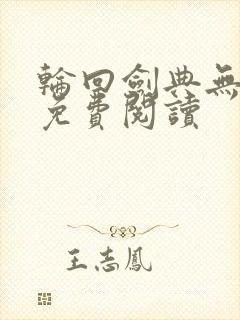 輪回劍典無
免費閱讀
王志鳳